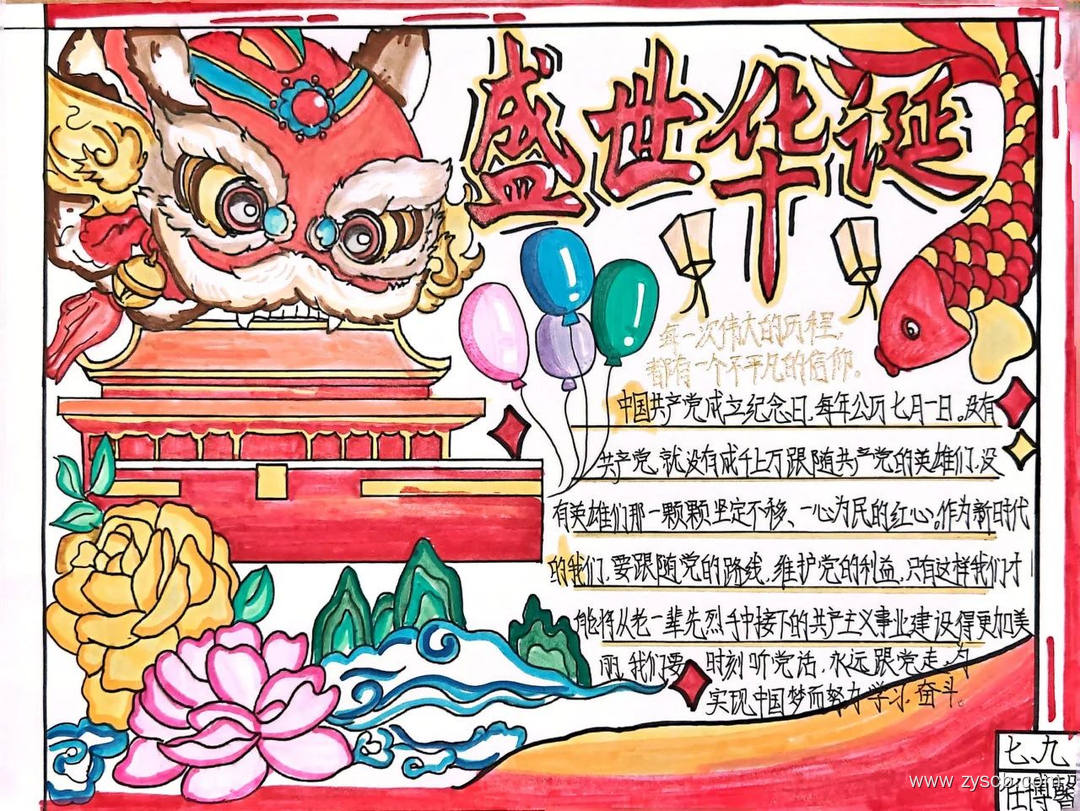 盛世华诞
每一次伟大的历程,
都有一个不平凡的信仰。
中国共产党成立纪念日,每年公历七月一日。没有
共产党,就没有成千上万跟随共产党的英雄们,没
有英雄们那一颗颗坚定不移、一心为民的红心。作为新时代
的我们,要跟随党的路线,维护党的利益,只有这样我们才
能将从老一辈先烈手中接下的共产主义事业建设得更加美
丽,我们要时刻听党话,永远跟党走,为
实现中国梦而努力学习、奋斗。
七、九
任博馨
www.zyscb.com